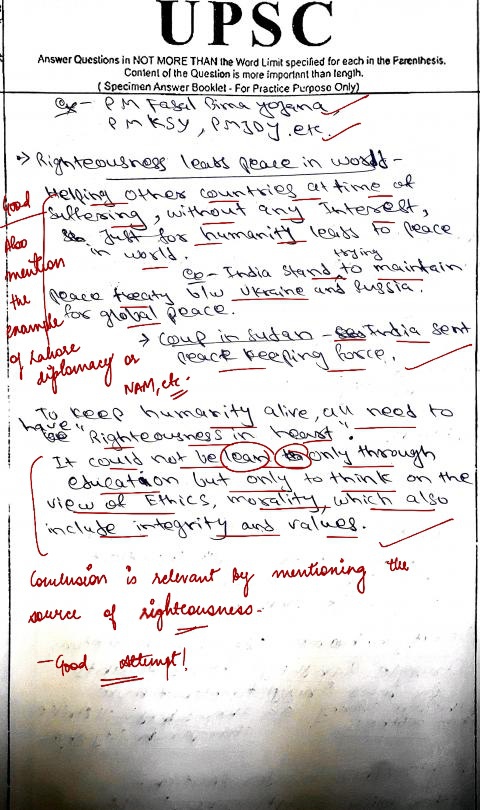 UPSC
Answer Questions in NOT MORE THAN the Word Limit specified for each in the Parenthesis.
Content of the Question is more important than length.
( Specimen Answer Booklet - For Practice Purpose Only)
Ex- PM Fasal Bima Yojana
PMKSY, PMJDY, etc.
-> Righteousness leads peace in world -
Helping other countries at time of
suffering, without any Interest,
Just for humanity leads to peace
in world.
Ex- India stand trying to maintain
peace treaty b/w Ukraine and Russia.
for global peace.
-> Coup in Sudan - India sent
peace keeping force.
Good
Also
mention
the
example
of Lahore
diplomacy or
NAM, etc.
To keep humanity alive, all need to
have "Righteousness in heart".
It could not be lean only through
education but only to think on the
view of Ethics, morality, which also
include integrity and values.
Conclusion is relevant by mentioning the
source of righteousness.
- Good attempt!